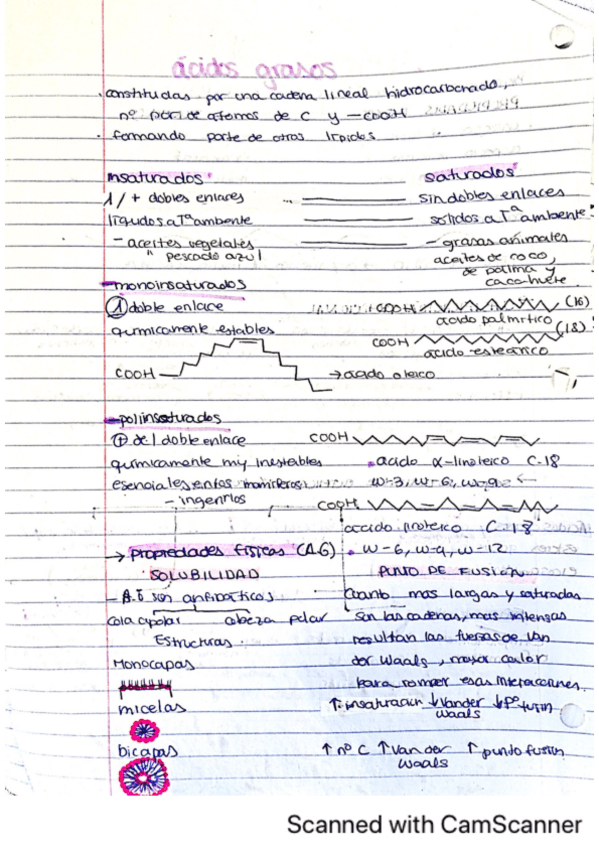 ácidos grasos
. constituidas por una cadena lineal hidrocarbonada,
nº par de atomos de C y -COOH
. formando parte de otros lípidos
insaturados
saturados
1/+ dobles enlaces
sin dobles enlaces
líquidos a Tª ambente
solidos a Tª ambente
- aceites vegetales
- grasas animales
" pescado azul
aceites de coco,
de palma y
cacahuete.
- monoinsaturados
① doble enlace
COOH (16)
acido palmítico
químicamente estables
COOH (18)
acido esteárico
COOH → acido oleico
- poliinsaturados
⊕ de 1 doble enlace
COOH
químicamente muy inestables
. acido α-linoleico C-18
esenciales en los mamíferos
w-3, w-6, w-9
- ingerirlos
COOH
accido linoleico C-18
→ propiedades físicas (A.G)
. w-6, w-9, w-12
SOLUBILIDAD
PUNTO DE FUSIÓN
- A.G son anfipáticos
Cuanto mas largas y saturadas
cola apolar cabeza polar
son las cadenas, mas intensas
Estructuras.
resultan las fuerzas de Van
Monocapas
der Waals, mayor calor
para romper esas interacciones.
micelas
↑ insaturación ↓ Vander Waals ↓ Pº fusión
bicapas
↑ nº C ↑ Van der Waals ↑ punto fusión
Scanned with CamScanner